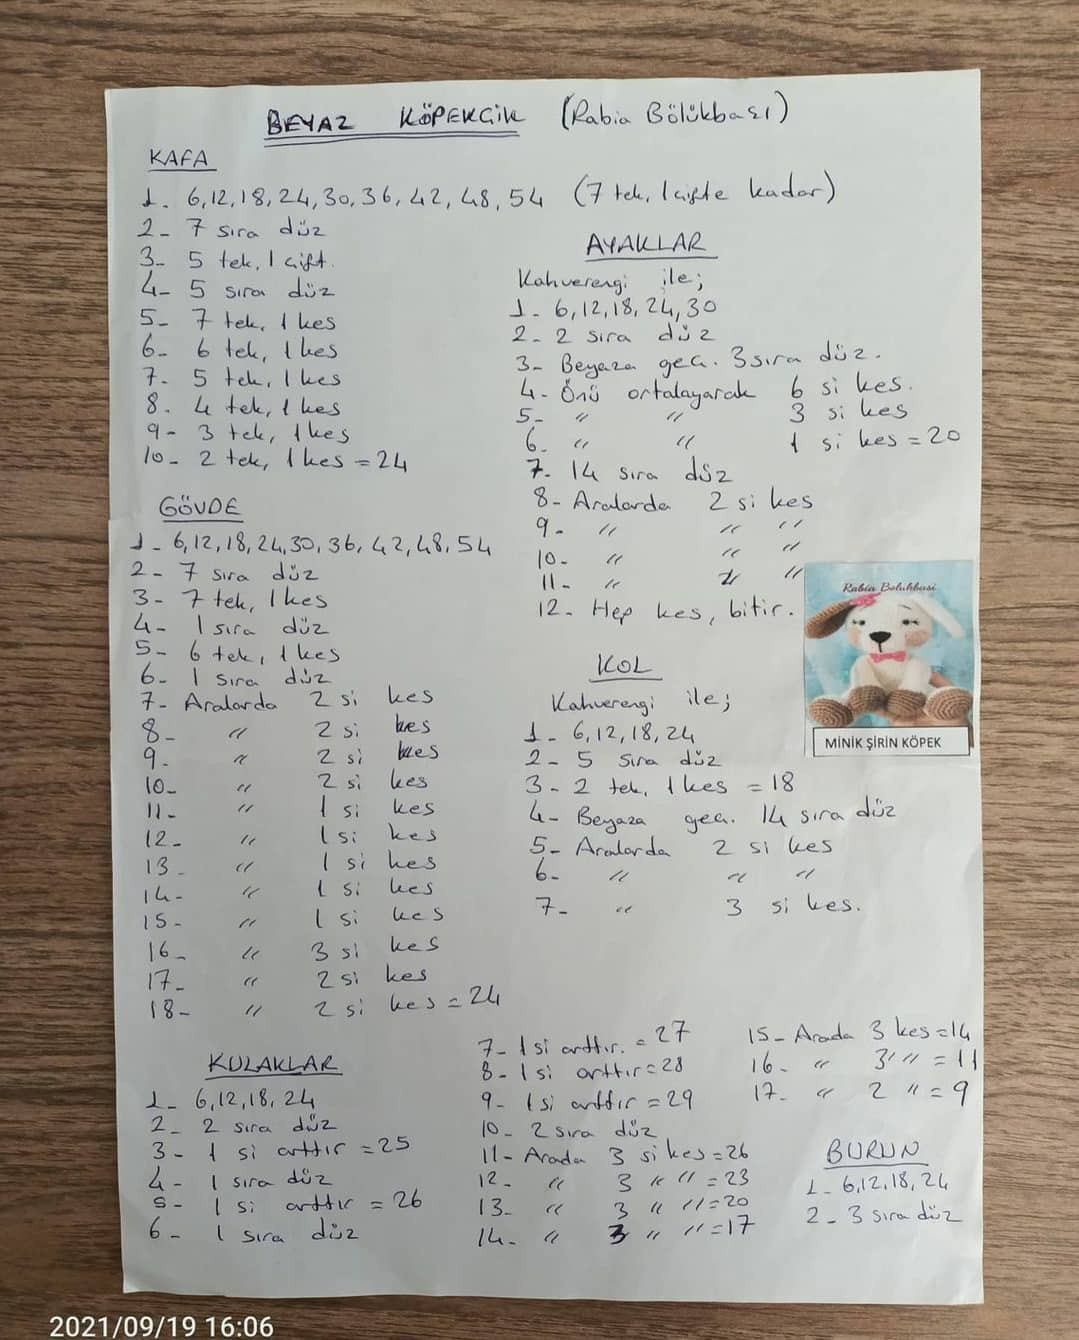 BEYAZ KÖPEKCİK (Rabia Bölükbaşı)
KAFA
1. 6,12,18,24,30,36,42,48,54 (7 tek, 1 çifte kadar)
2- 7 sıra düz
3- 5 tek, 1 çift.
4- 5 sıra düz
5- 7 tek, 1 kes
6- 6 tek, 1 kes
7- 5 tek, 1 kes
8. 4 tek, 1 kes
9- 3 tek, 1 kes
10- 2 tek, 1 kes = 24
GÖVDE
1- 6,12,18,24,30,36,42,48,54
2- 7 sıra düz
3- 7 tek, 1 kes
4- 1 sıra düz
5- 6 tek, 1 kes
6- 1 sıra düz
7- Aralarda 2 si kes
8- " 2 si kes
9. " 2 si kes
10- " 2 si kes
11- " 1 si kes
12- " 1 si kes
13- " 1 si kes
14- " 1 si kes
15- " 1 si kes
16- " 3 si kes
17- " 2 si kes
18- " 2 si kes = 24
AYAKLAR
Kahverengi ile;
1- 6,12,18,24,30
2- 2 sıra düz
3- Beyaza geç. 3 sıra düz.
4- Önü ortalayarak 6 si kes.
5- " " 3 si kes
6- " " 1 si kes = 20
7- 14 sıra düz
8- Aralarda 2 si kes
9- " " "
10- " " "
11- " " "
12- Hep kes, bitir.
Rabia Bolukbasi
MİNİK ŞİRİN KÖPEK
KOL
Kahverengi ile;
1- 6,12,18,24
2- 5 sıra düz
3- 2 tek, 1 kes = 18
4- Beyaza geç. 14 sıra düz
5- Aralarda 2 si kes
6- " " "
7- " 3 si kes.
KULAKLAR
1- 6,12,18,24
2- 2 sıra düz
3- 1 si arttır = 25
4- 1 sıra düz
5- 1 si arttır = 26
6- 1 sıra düz
7- 1 si arttır. = 27
8- 1 si arttır = 28
9- 1 si arttır = 29
10- 2 sıra düz
11- Arada 3 si kes = 26
12- " 3 " " = 23
13- " 3 " " = 20
14- " 3 " " = 17
15- Arada 3 kes = 14
16- " 3 " " = 11
17- " 2 " = 9
BURUN
1- 6,12,18,24
2- 3 sıra düz
2021/09/19 16:06